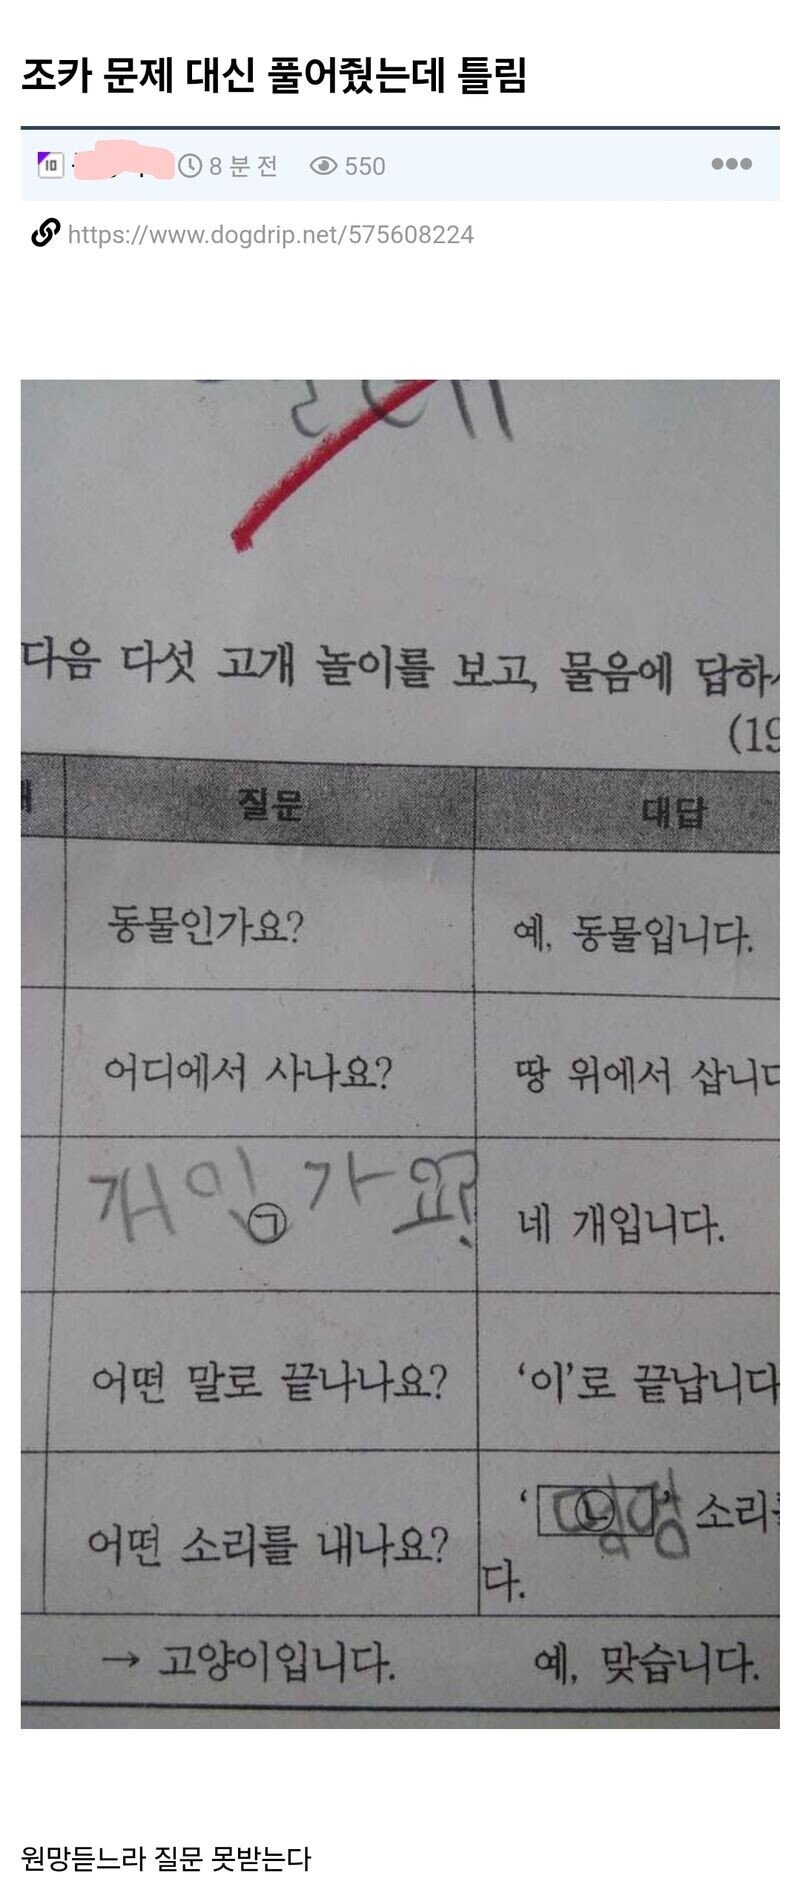 조카 문제 대신 풀어줬는데 틀림
10
8 분 전
550
https://www.dogdrip.net/575608224
다음 다섯 고개 놀이를 보고, 물음에 답하
(19
질문 대답
동물인가요? 예, 동물입니다.
어디에서 사나요? 땅 위에서 삽니다
개인가요?
㉠
네 개입니다.
어떤 말로 끝나나요? '이'로 끝납니다
어떤 소리를 내나요? '㉡' 소리를
다.
→ 고양이입니다. 예, 맞습니다.
원망듣느라 질문 못받는다